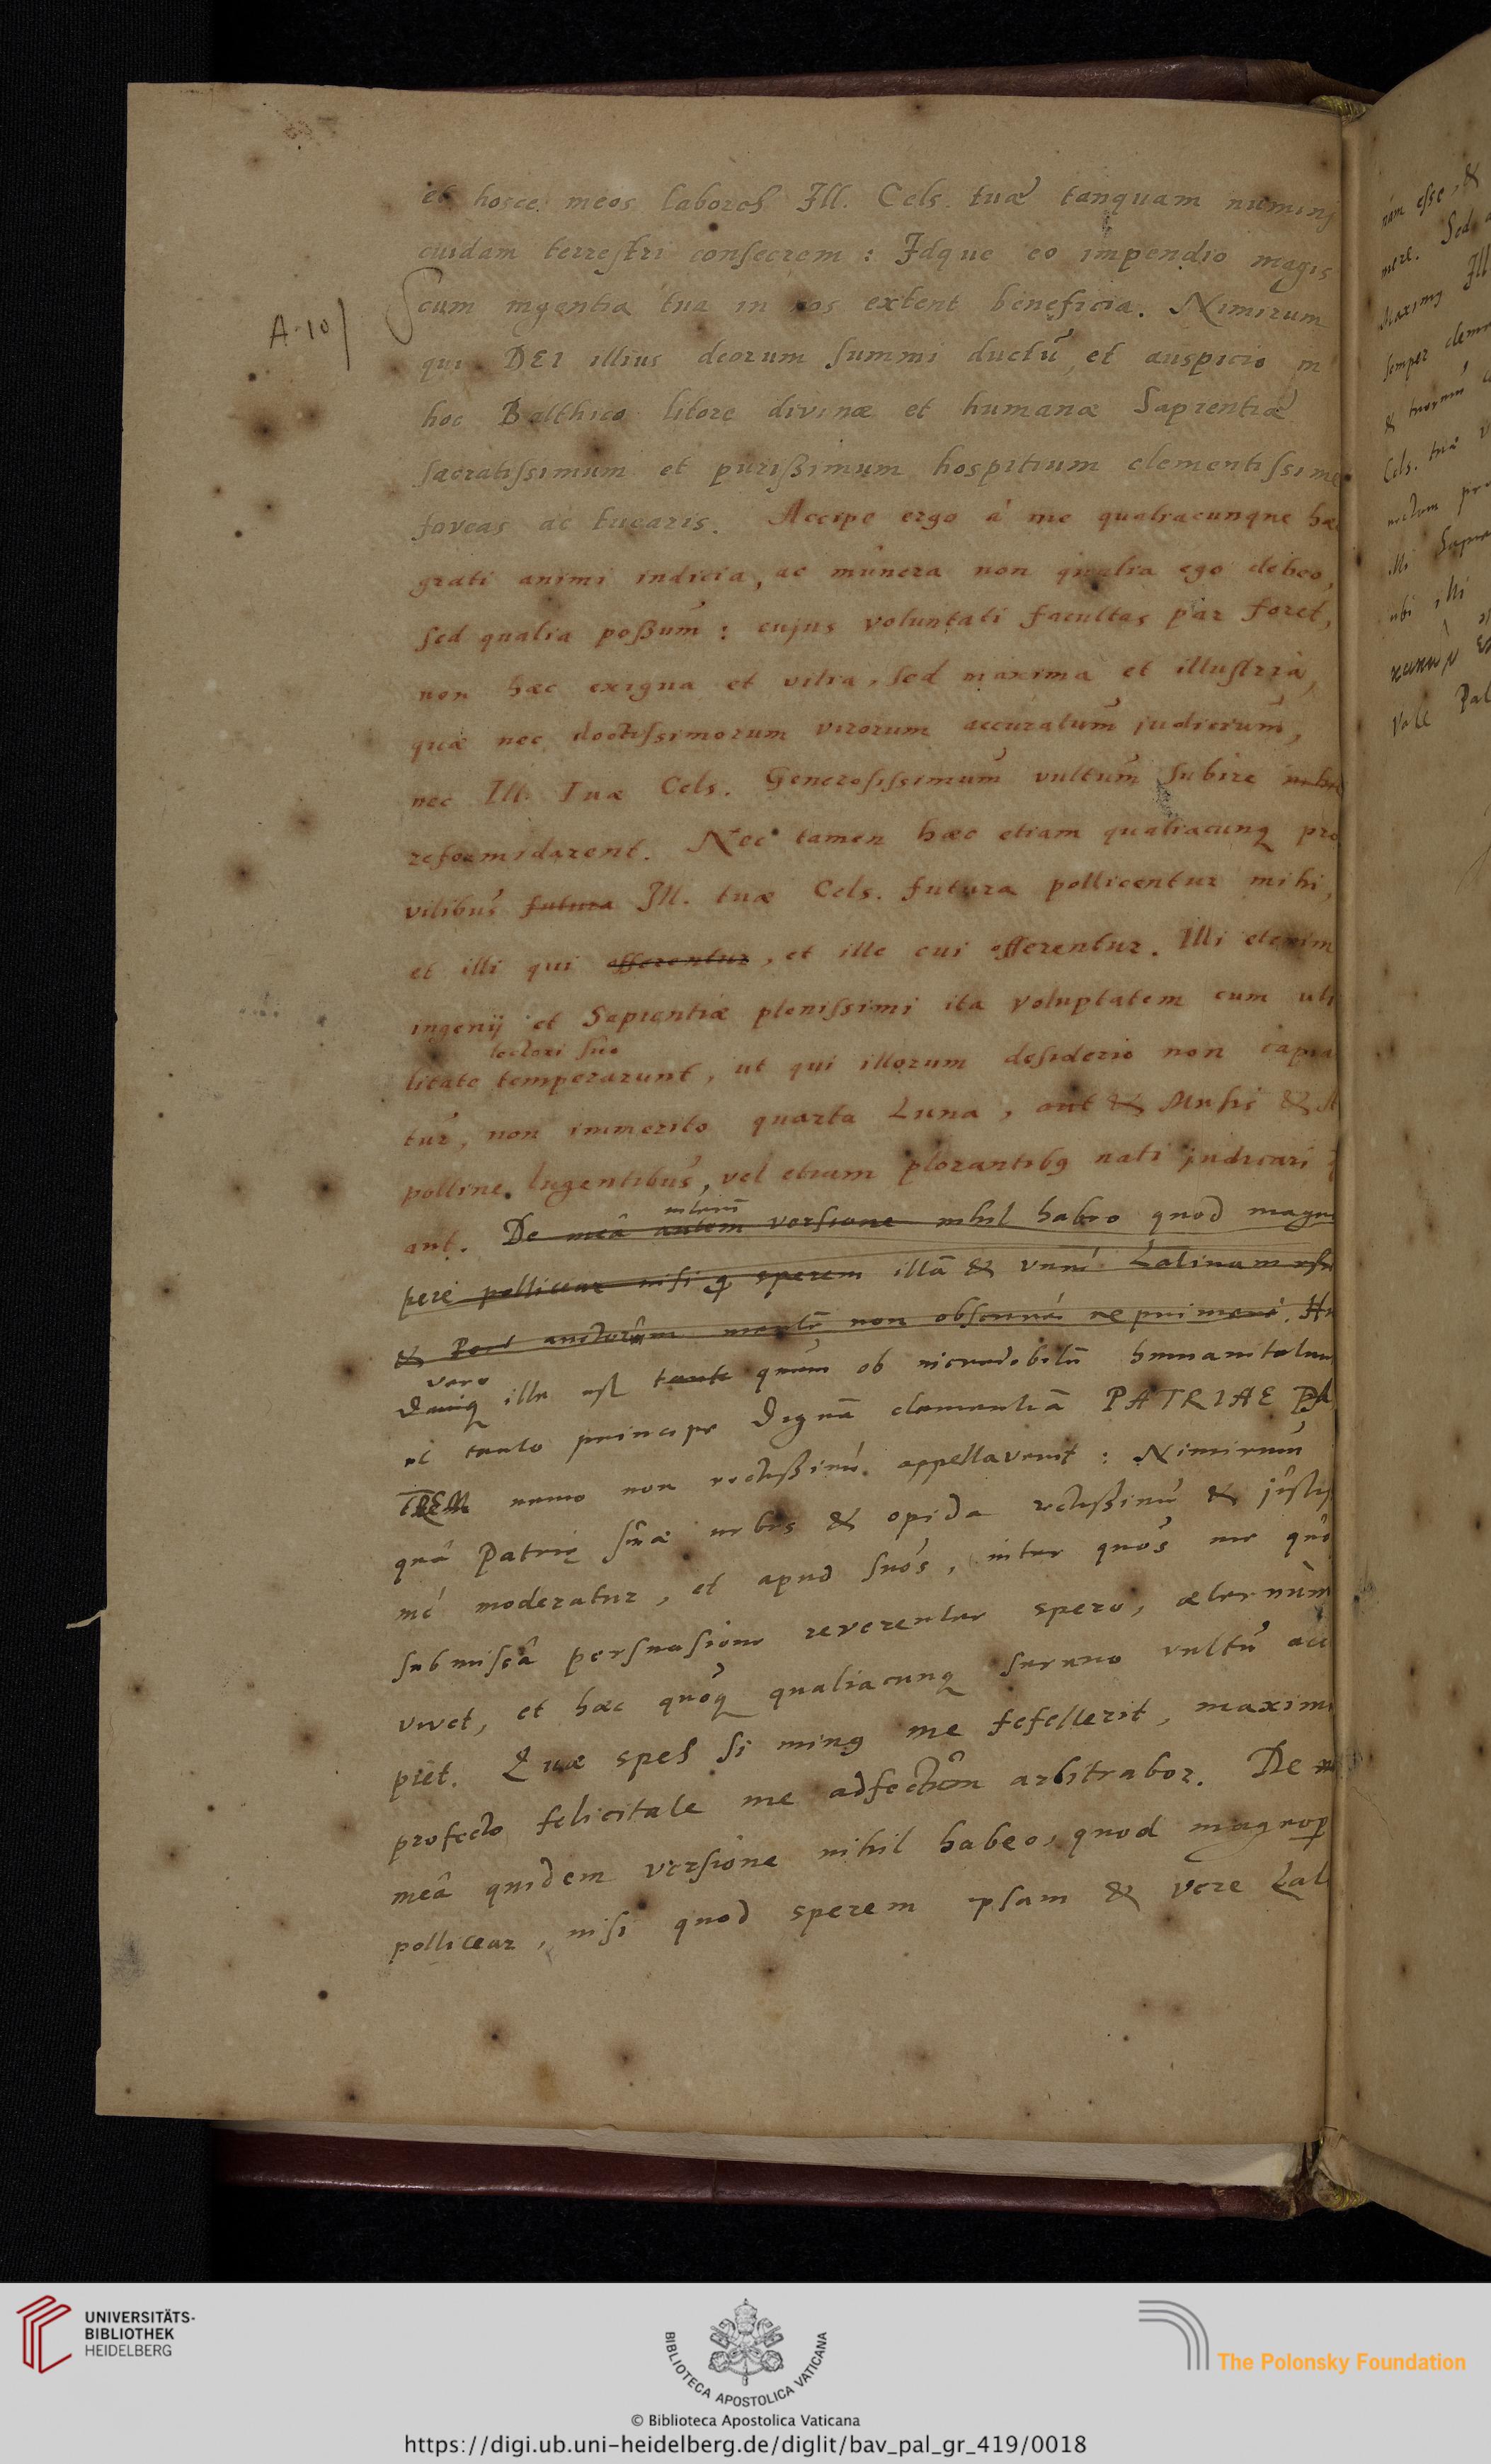 et hosce meos labores Ill. Cels. tuæ tanquam numinj
cuidam terrestri consecrem : Idque eo impendio magis
A·10
cum ingentia tua in nos extent beneficia. Nimirum
qui DEI illius deorum summi ductu, et auspicio in
hoc Balthico litore divinæ et humanæ Sapientiæ
sacratissimum et purißimum hospitium clementissime
foveas ac tuearis. Accipe ergo á me qualiacunque hæc
grati animi indicia, ac munera non qualia ego debeo,
sed qualia poßum : cujus voluntati facultas par foret,
non hæc exigua et vilia, sed maxima et illustria,
quæ nec doctissimorum virorum accuratum judicium,
nec Ill. Tuæ Cels. Generosissimum vultum subire
reformidarent. Nec tamen hæc etiam qualiacunq pro
vilibus futura Ill. tuæ Cels. futura pollicentur mihi,
et illi qui offerentur, et ille cui offerentur. Illi etenim
ingenij et Sapientiæ plenissimi ita voluptatem cum uti
lectori suo
litate temperarunt, ut qui illorum desiderio non capia
tur, non immerito quarta Luna, aut & Musis & A
polline lugentibus, vel etiam plorantibꝰ nati judicari
ant. De meâ autem versione nihil habeo quod magno
pere polliciar nisi sperem illā & Latinam
& auctorum mentē non obscuré
vero
ille est quem ob incredibilē humanitatem
et tanto principe dignā clementiā PATRIAE PA
TREM nemo non rectißimé appellaverit : Nimirum
quâ Patrię suæ urbes & opida rectißimé & justis
mé moderatur, et apud suos, inter quos me quo
submissâ persuasione reverenter spero, æternùm
vivet, et hæc quoq qualiacunq sereno vultu acci
piet. Quæ spes si minꝰ me fefellerit, maxima
profecto felicitate me adfectum arbitrabor. De
meâ quidem versione nihil habeo, quod magnop
pollicear, nisi quod sperem ipsam & vere Lati
nam esse, &
mere. Sed
Maximꝰ Ill
semper clem
&
Cels. tuæ
Vale Pal
UNIVERSITÄTS-
BIBLIOTHEK
HEIDELBERG
BIBLIOTECA APOSTOLICA VATICANA
The Polonsky Foundation
© Biblioteca Apostolica Vaticana
https://digi.ub.uni-heidelberg.de/diglit/bav_pal_gr_419/0018